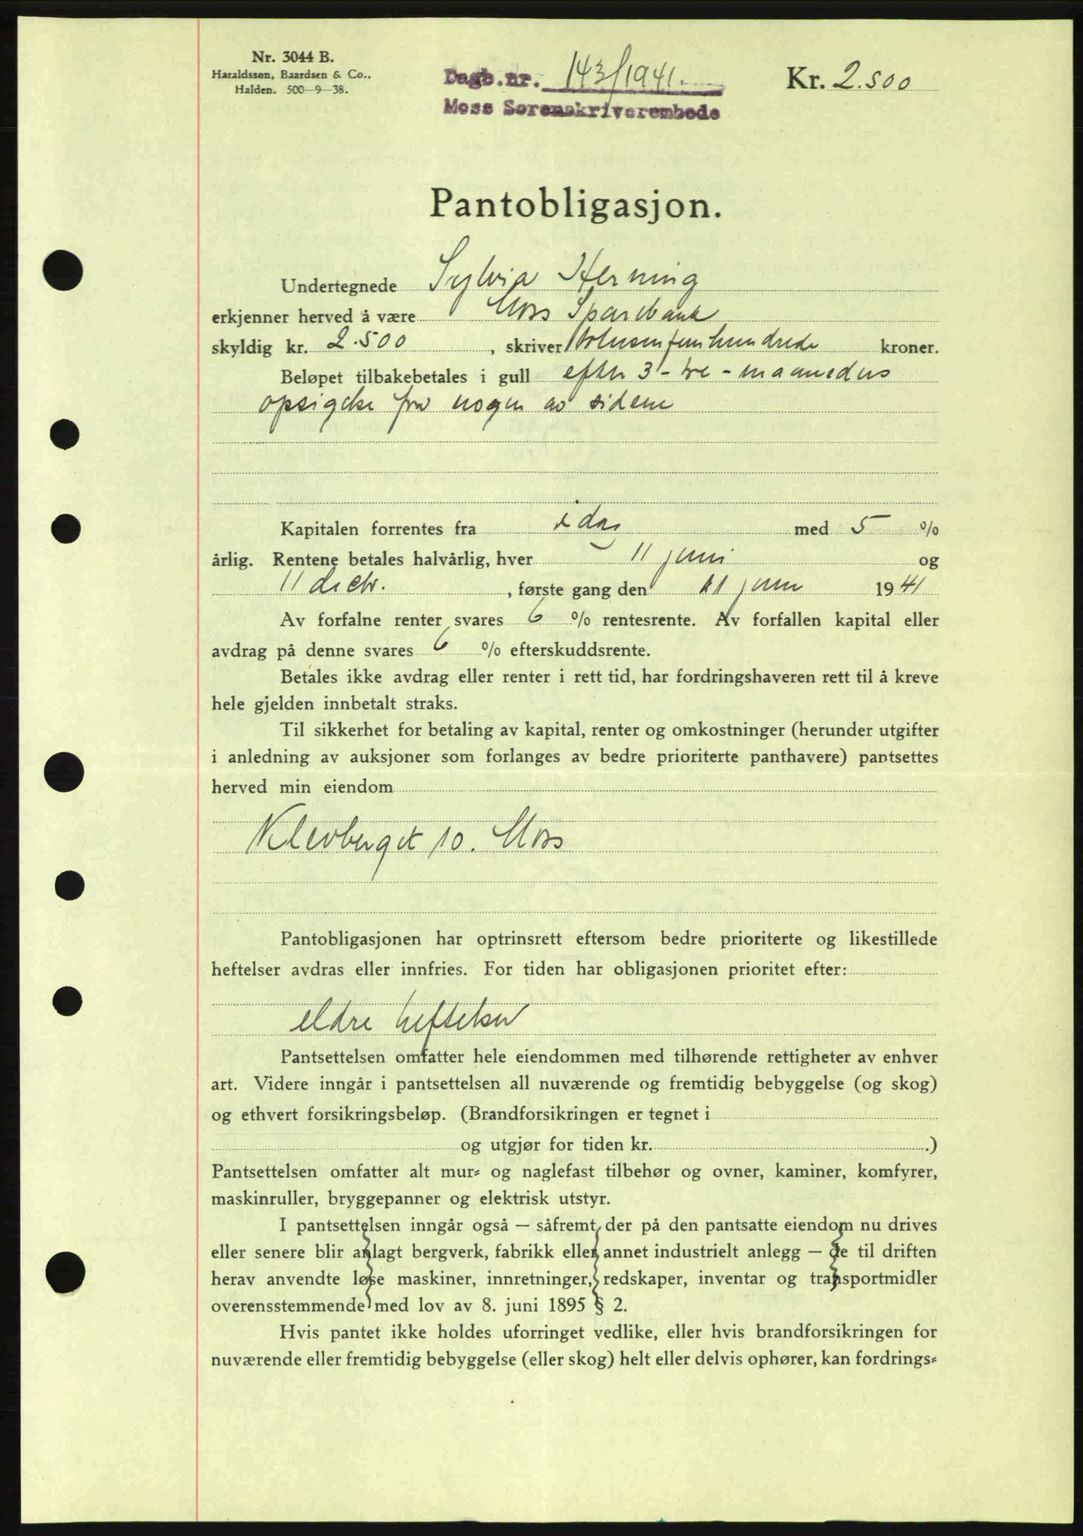 Nr. 3044 B.
Haraldssen, Baardsen & Co.,
Halden. 500—9—38.
Dagb.nr. 143/1941.
Moss Sorenskriverembede
Kr. 2.500
Pantobligasjon.
Undertegnede Sylvia Herning
erkjenner herved å være Moss Sparebank
skyldig kr. 2.500, skriver totusenfemhundrede kroner.
Beløpet tilbakebetales i gull efter 3 - tre - maaneders
opsigelse fra nogen av sidene
Kapitalen forrentes fra idag med 5 %
årlig. Rentene betales halvårlig, hver 11 juni og
11 decbr., første gang den 11 juni 1941
Av forfalne renter svares 6 % rentesrente. Av forfallen kapital eller
avdrag på denne svares 6 % efterskuddsrente.
Betales ikke avdrag eller renter i rett tid, har fordringshaveren rett til å kreve
hele gjelden innbetalt straks.
Til sikkerhet for betaling av kapital, renter og omkostninger (herunder utgifter
i anledning av auksjoner som forlanges av bedre prioriterte panthavere) pantsettes
herved min eiendom
Klevberget 10. Moss
Pantobligasjonen har optrinsrett eftersom bedre prioriterte og likestillede
heftelser avdras eller innfries. For tiden har obligasjonen prioritet efter:
eldre heftelser
Pantsettelsen omfatter hele eiendommen med tilhørende rettigheter av enhver
art. Videre inngår i pantsettelsen all nuværende og fremtidig bebyggelse (og skog)
og ethvert forsikringsbeløp. (Brandforsikringen er tegnet i
og utgjør for tiden kr. .)
Pantsettelsen omfatter alt mur- og naglefast tilbehør og ovner, kaminer, komfyrer,
maskinruller, bryggepanner og elektrisk utstyr.
I pantsettelsen inngår også — såfremt der på den pantsatte eiendom nu drives
eller senere blir anlagt bergverk, fabrikk eller annet industrielt anlegg — de til driften
herav anvendte løse maskiner, innretninger, redskaper, inventar og transportmidler
overensstemmende med lov av 8. juni 1895 § 2.
Hvis pantet ikke holdes uforringet vedlike, eller hvis brandforsikringen for
nuværende eller fremtidig bebyggelse (eller skog) helt eller delvis ophører, kan fordrings-